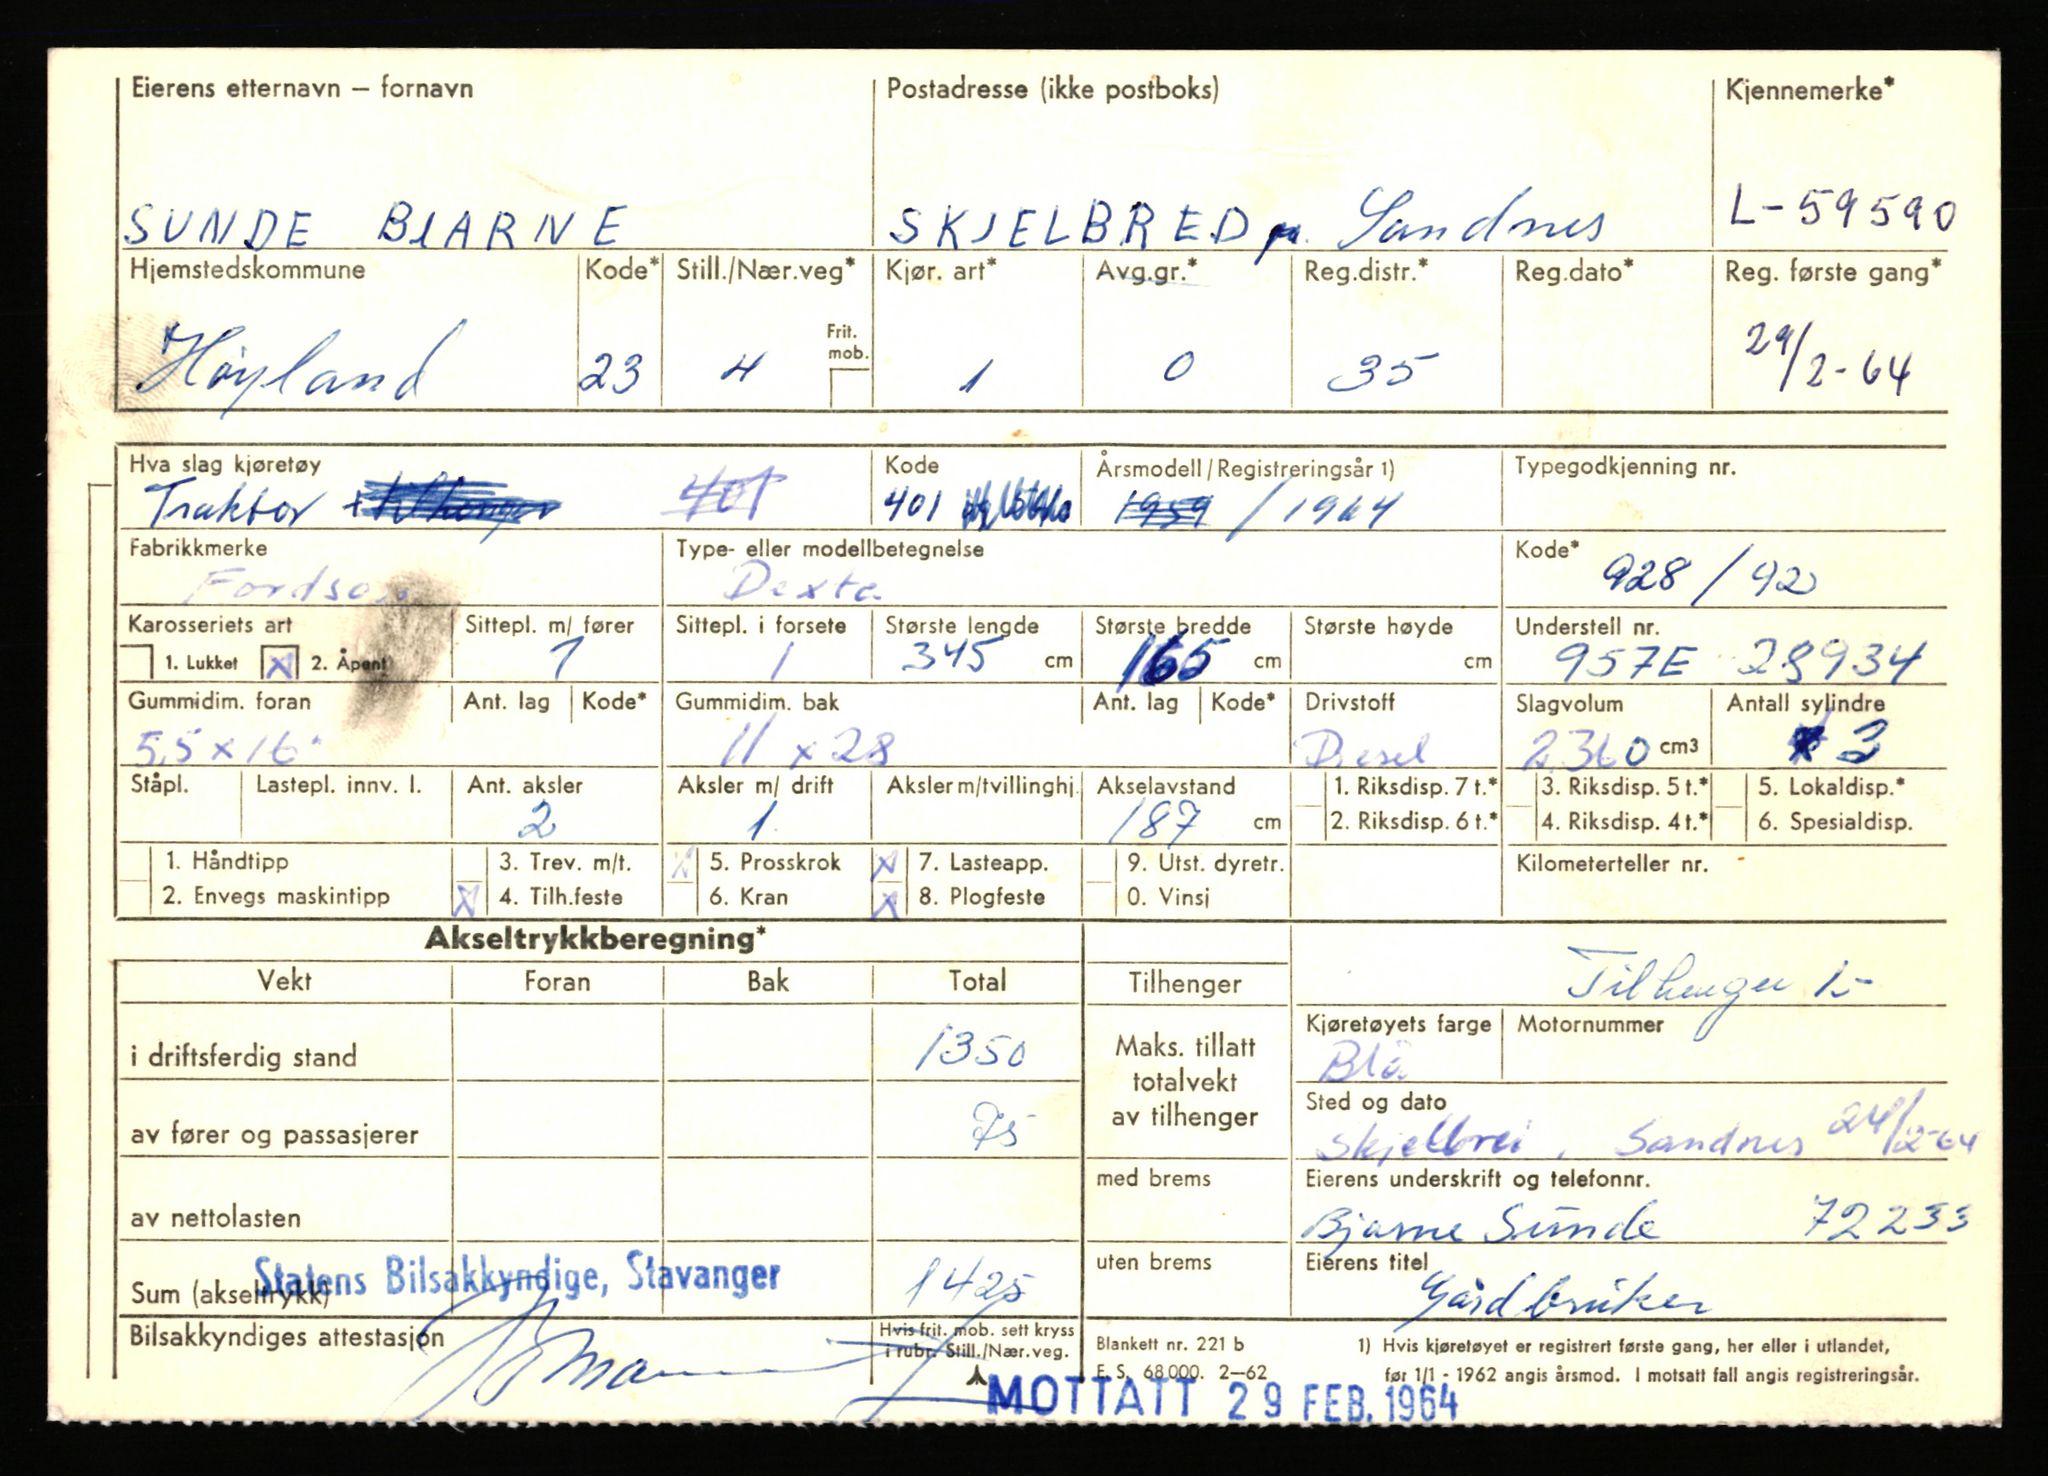 Eierens etternavn – fornavn Postadresse (ikke postboks) Kjennemerke*
SUNDE BJARNE SKJELBRED pr. Sandnes L-59590
Hjemstedskommune Kode* Still./Nær.veg* Kjør. art* Avg.gr.* Reg.distr.* Reg.dato* Reg. første gang*
Frit.
mob.
Høyland 23 4 1 0 35 29/2-64
Hva slag kjøretøy Kode Årsmodell/Registreringsår 1) Typegodkjenning nr.
Traktor + tilhenger 401 401 1959 / 1964
Fabrikkmerke Type- eller modellbetegnelse Kode*
Fordson Dexta 928 / 92
Karosseriets art Sittepl. m/ fører Sittepl. i forsete Største lengde Største bredde Største høyde Understell nr.
1. Lukket x 2. Åpent 1 1 345 cm 165 cm cm 957E 28934
Gummidim. foran Ant. lag Kode* Gummidim. bak Ant. lag Kode* Drivstoff Slagvolum Antall sylindre
5,5 x 16" 11 x 28 Diesel 2360 cm3 3
Ståpl. Lastepl. innv. l. Ant. aksler Aksler m/ drift Aksler m/tvillinghj. Akselavstand 1. Riksdisp. 7 t.* 3. Riksdisp. 5 t.* 5. Lokaldisp.*
2 1 187 cm 2. Riksdisp. 6 t.* 4. Riksdisp. 4 t.* 6. Spesialdisp.
1. Håndtipp 3. Trev. m/t. x 5. Prosskrok x 7. Lasteapp. 9. Utst. dyretr. Kilometerteller nr.
2. Envegs maskintipp x 4. Tilh.feste 6. Kran x 8. Plogfeste 0. Vinsj
Akseltrykkberegning*
Vekt Foran Bak Total Tilhenger Tilhenger L-
Kjøretøyets farge Motornummer
i driftsferdig stand 1350 Maks. tillatt
totalvekt
av tilhenger
Blå
Sted og dato
av fører og passasjerer 75 Skjelbrei, Sandnes 24/2-64
med brems Eierens underskrift og telefonnr.
av nettolasten Bjarne Sunde 72233
uten brems Eierens titel
Statens Bilsakkyndige, Stavanger
Sum (akseltrykk) 1425 Gårdbruker
Bilsakkyndiges attestasjon Hvis frit. mob. sett kryss
i rubr. Still./Nær.veg.
Blankett nr. 221 b
E. S. 68 000. 2–62
1) Hvis kjøretøyet er registrert første gang, her eller i utlandet,
før 1/1 - 1962 angis årsmod. I motsatt fall angis registreringsår.
MOTTATT 29 FEB. 1964